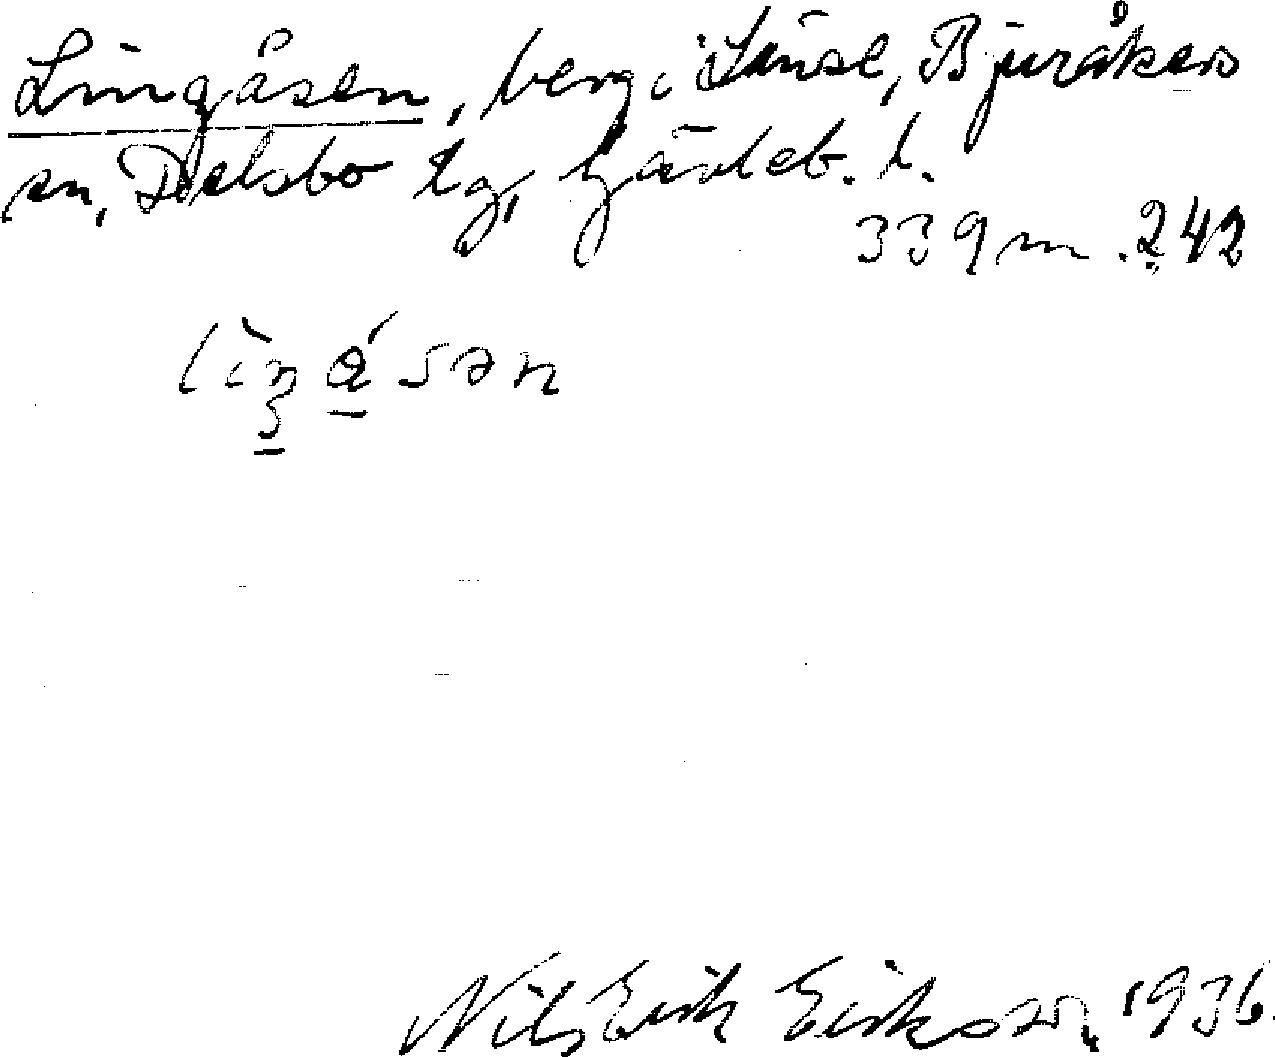 Lingåsen, berg i Sänse, Bjuråkers
sn, Delsbo tg, Gävleb. l.
339 m. 242
lìŋåśən
Nils Erik Erikson, 1936.